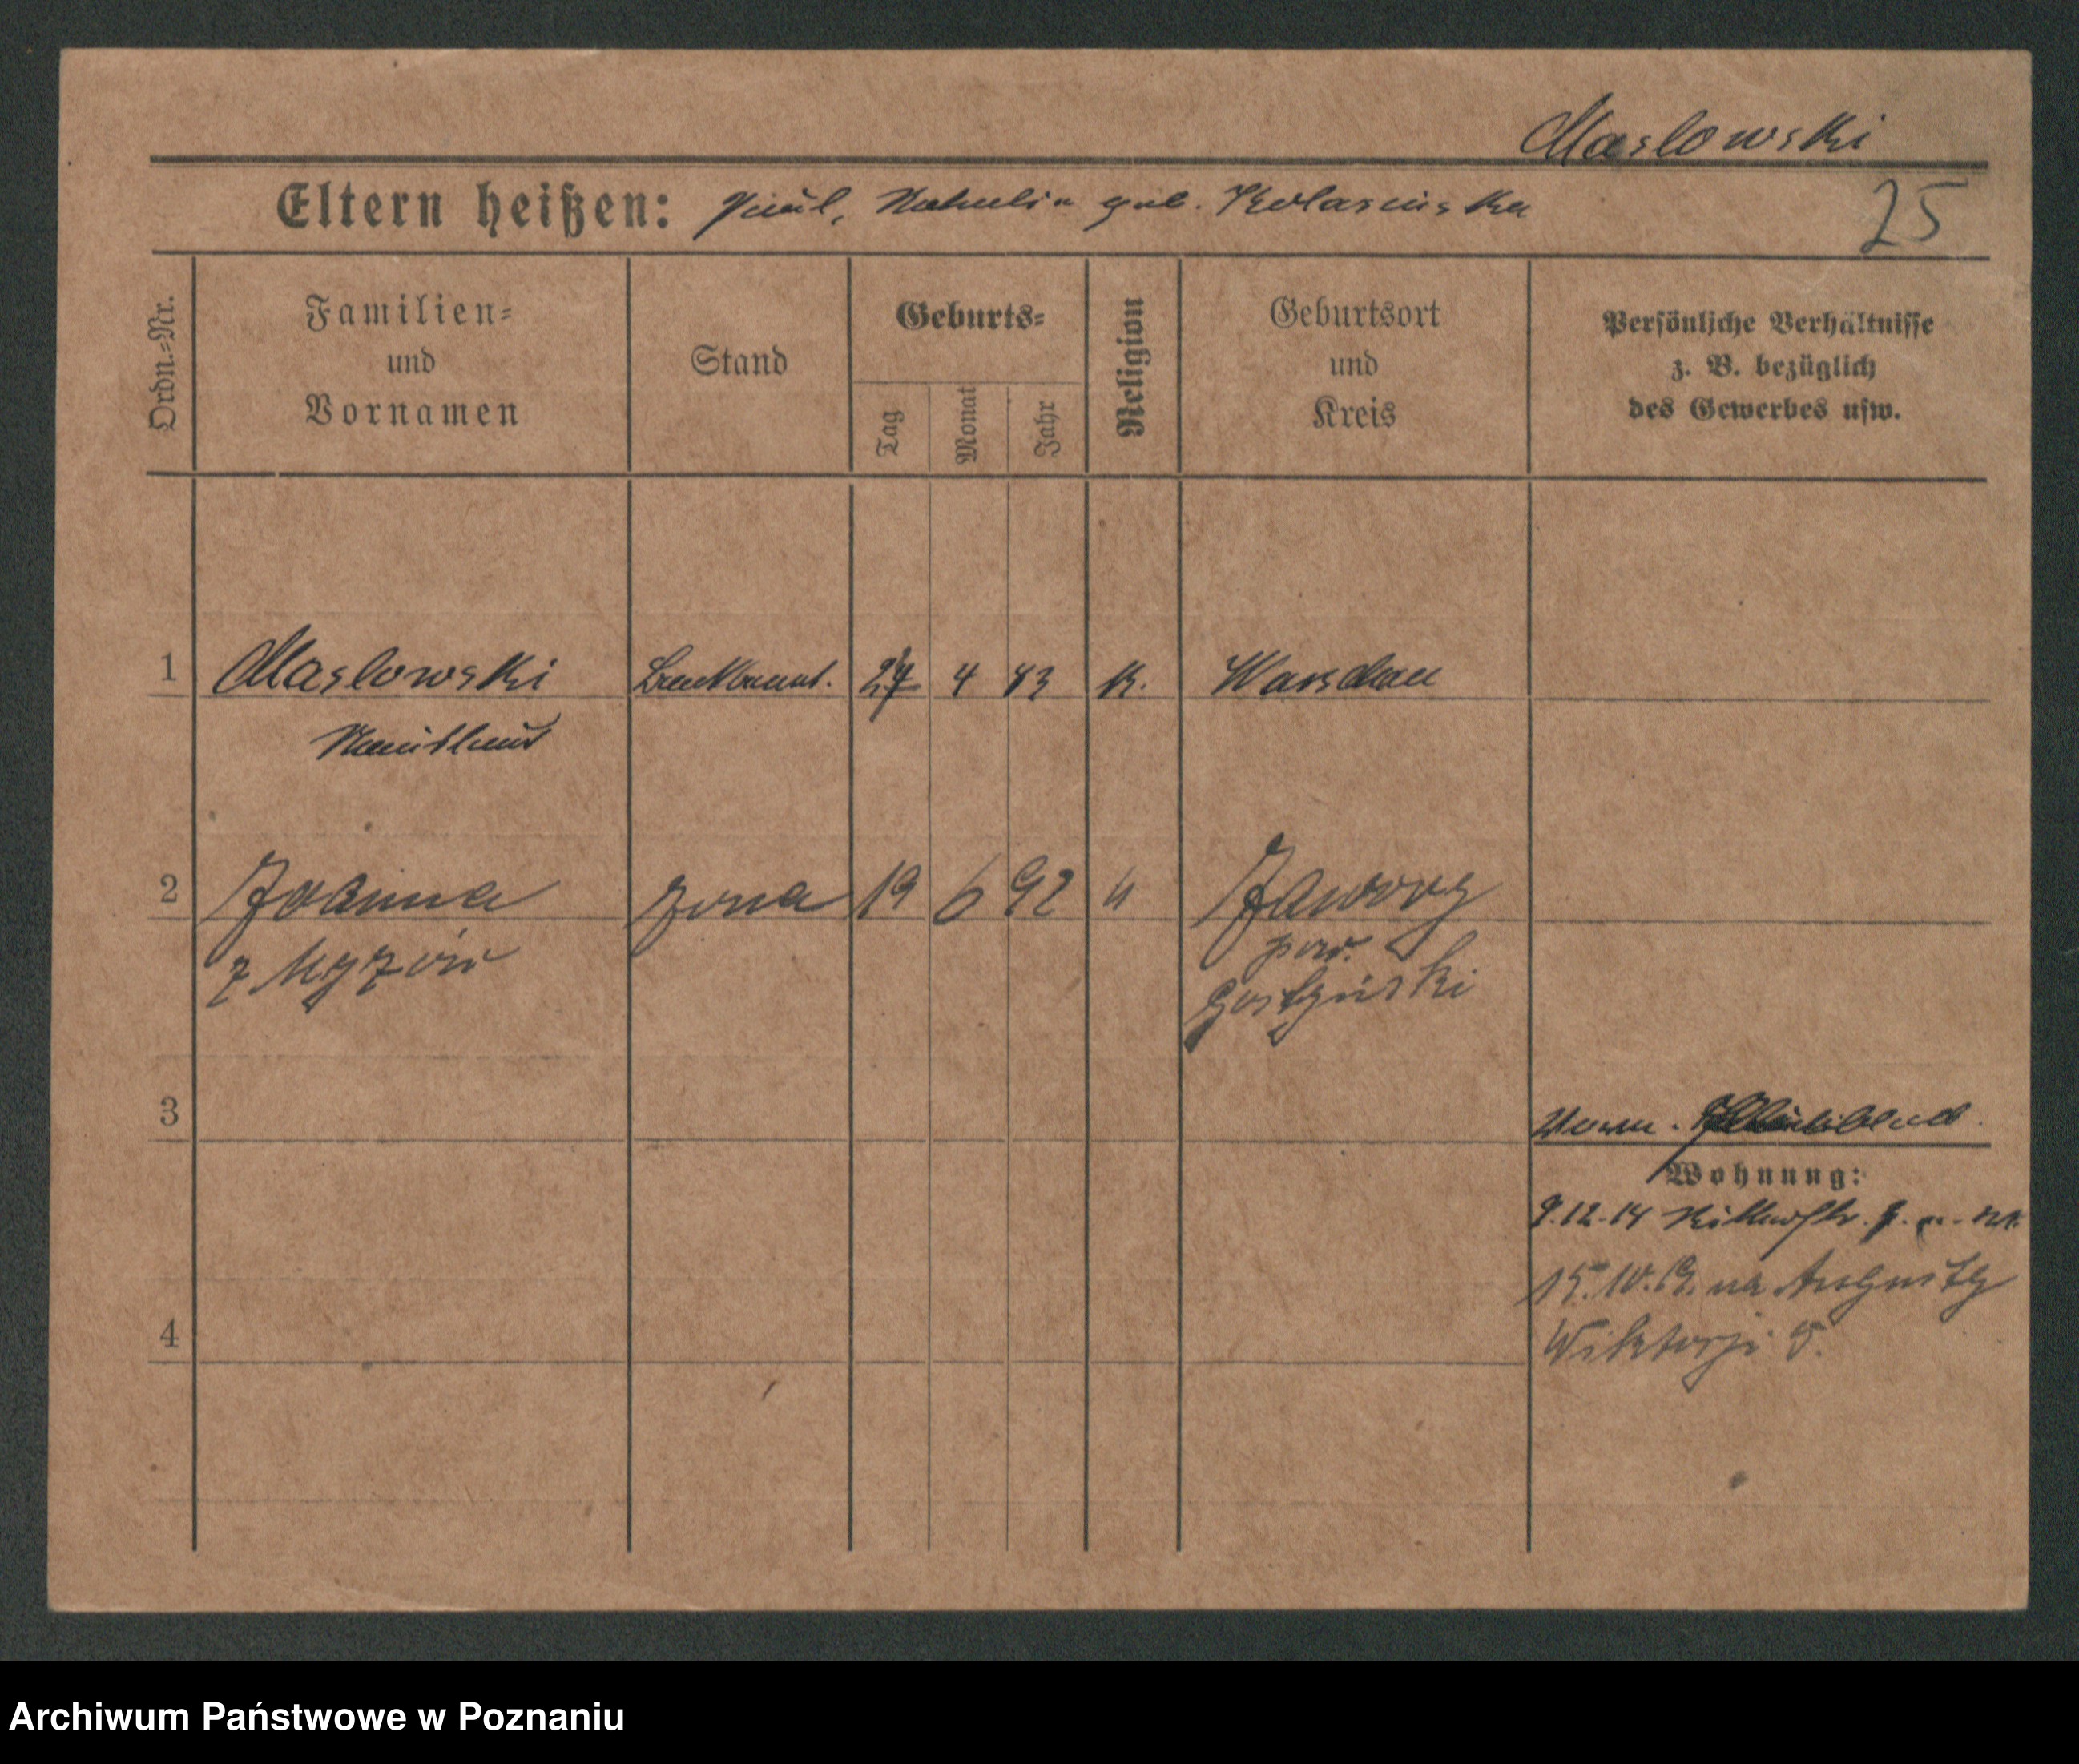 Maslowski
Eltern heißen: Paul, geb. Kolasinska
25
Ordn.-Nr.
Familien-
und
Vornamen
Stand
Geburts-
Tag
Monat
Jahr
Religion
Geburtsort
und
Kreis
Persönliche Verhältnisse
z. B. bezüglich
des Gewerbes usw.
1 Maslowski 4 83 K. Warschau
Stanislaus
2 Joanna żona 19 6 92 " Jawory
z Myzów pow.
Gostyński
3
Wohnung:
9.12.14 Ritterstr.
15.10.19. na Augusty
Wiktorji 5.
4
Archiwum Państwowe w Poznaniu